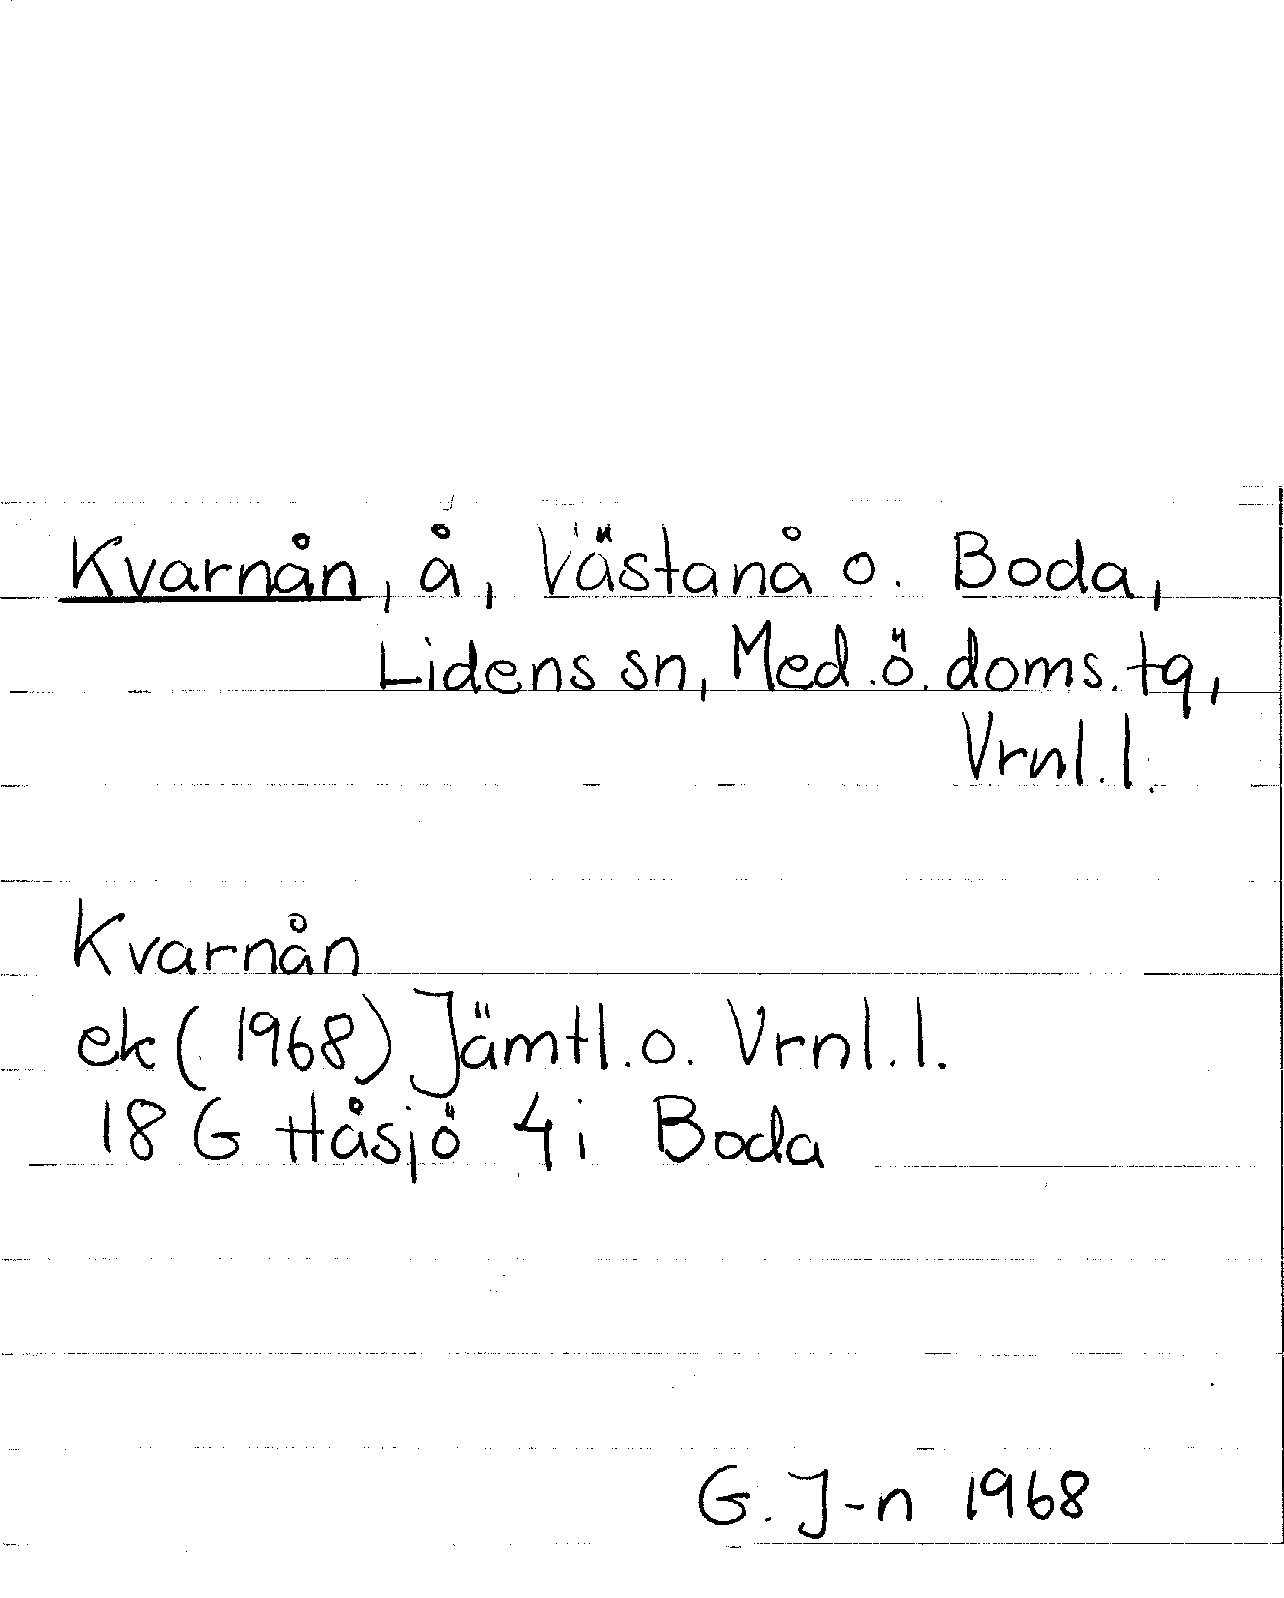 Kvarnån, å, Västanå o. Boda,
Lidens sn, Med. ö. doms. tg,
Vrnl. l.
Kvarnån
ek (1968) Jämtl. o. Vrnl. l.
18 G Håsjö 4 i Boda
G. J-n 1968